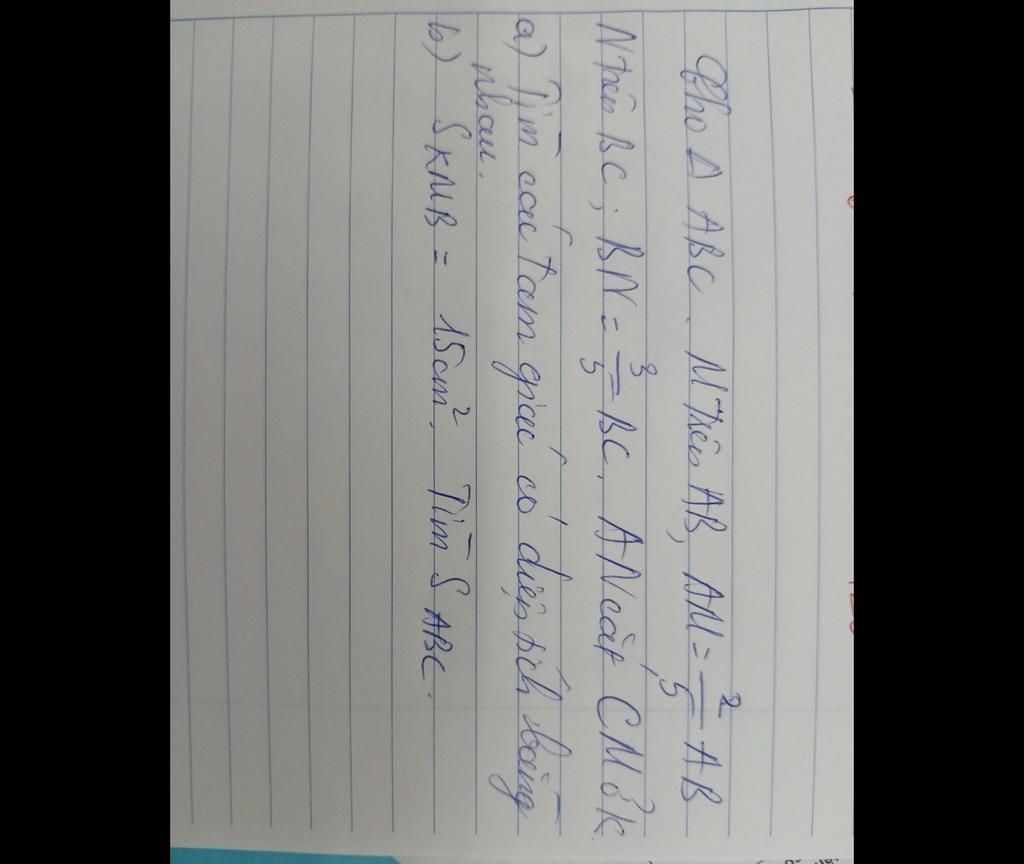 Cho Δ ABC. M trên AB, AM = 2/5 AB
N trên BC; BN = 3/5 BC. AN cắt CM ở K.
a) Tìm các Tam giác có diện tích bằng
nhau.
b) SKMB = 15cm², Tìm SABC.